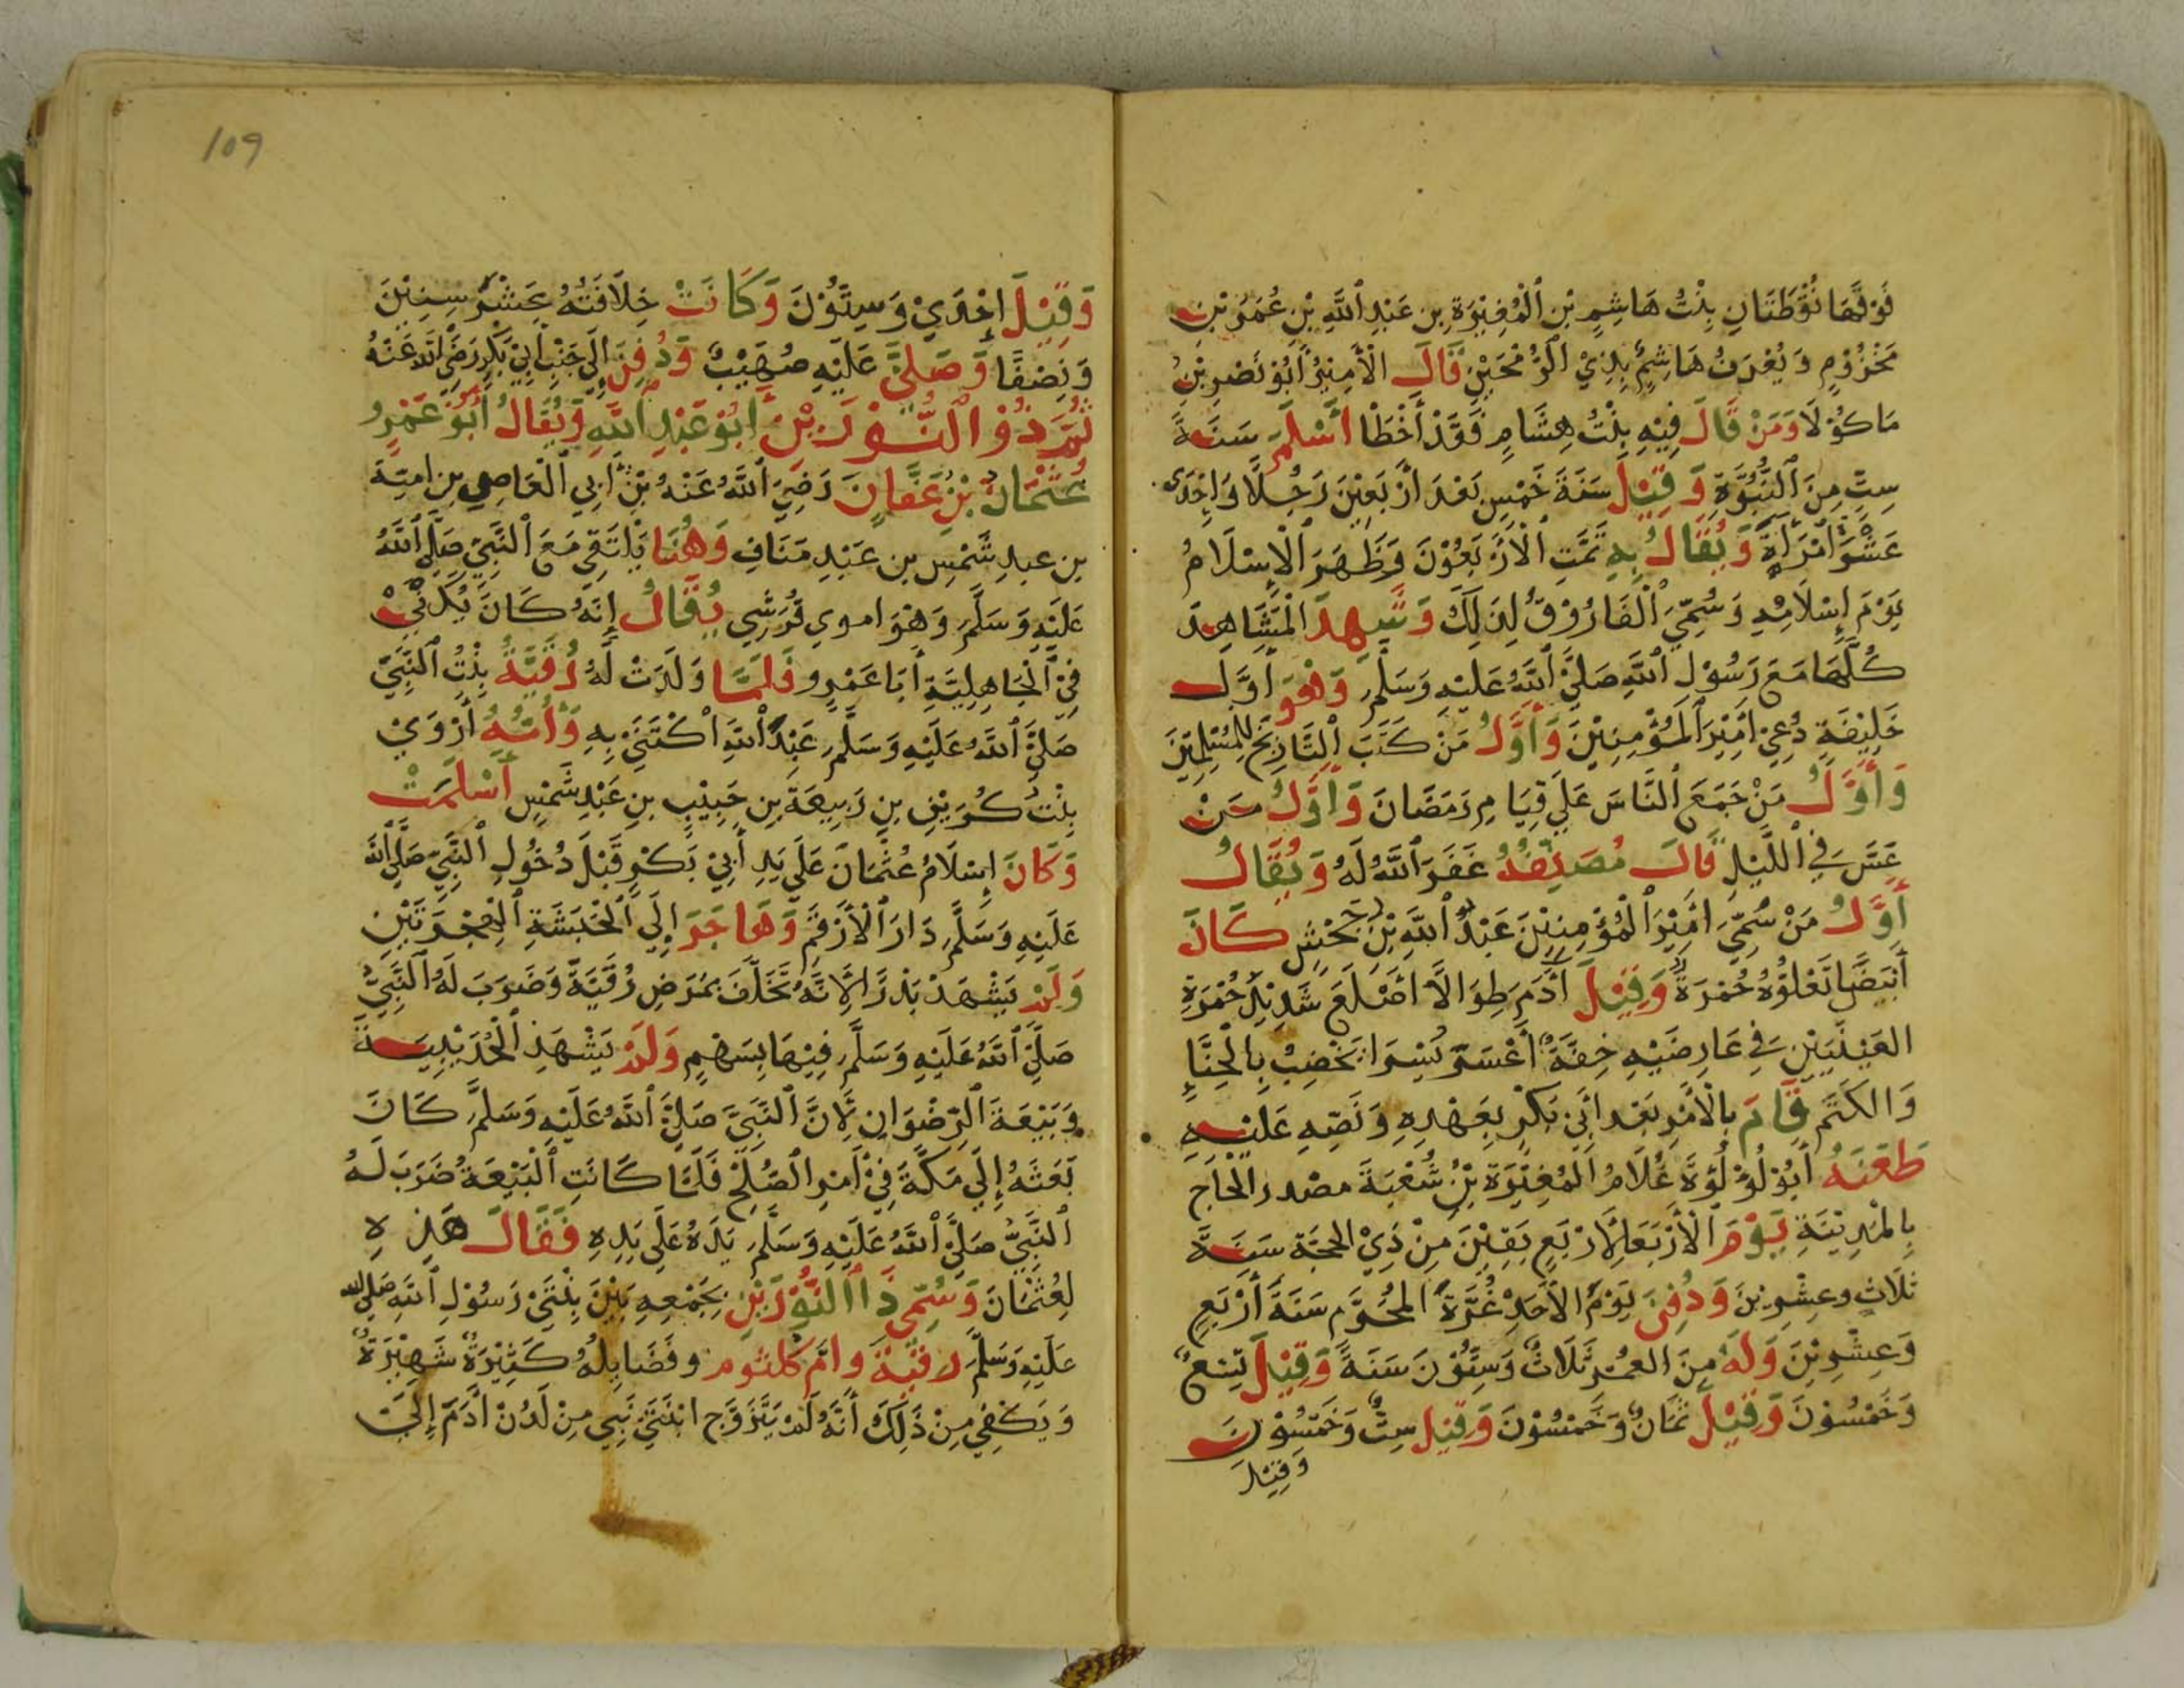 فَوْقَهَا نُقْطَتَانِ بِنْتُ هَاشِمِ بْنِ الْمُغِيْرَةِ بِن عَبْدِ اللَّهِ بْنِ عُمَرَ بْنِ
مَخْزُوْمٍ وَيُعْرَفُ هَاشِمٌ بِذِيْ الرُّمْحَيْنِ قَالَ الْأَمِيْرُ أَبُوْ نَصْرِ بْنُ
مَاكُوْلَا وَمَنْ قَالَ فِيْهِ بِنْتُ هِشَامٍ فَقَدْ أَخْطَا أَسْلَمَ سَنَةَ
سِتٍّ مِنَ النُّبُوَّةِ وَقِيْلَ سَنَةَ خَمْسٍ بَعْدَ أَرْبَعِيْنَ رَجُلًا وَإِحْدَى
عَشْرَةَ امْرَأَةً وَيُقَالُ بِهِ تَمَّتِ الْأَرْبَعُوْنَ وَظَهَرَ الْإِسْلَامُ
يَوْمَ إِسْلَامِهِ وَسُمِّيَ الْفَارُوْقُ لِذَلِكَ وَشَهِدَ الْمَشَاهِدَ
كُلَّهَا مَعَ رَسُوْلِ اللَّهِ صَلَّى اللَّهُ عَلَيْهِ وَسَلَّمَ وَهُوَ أَوَّلُ
خَلِيْفَةٍ دُعِيَ أَمِيْرَ الْمُؤْمِنِيْنَ وَأَوَّلُ مَنْ كَتَبَ التَّارِيْخَ لِلْمُسْلِمِيْنَ
وَأَوَّلُ مَنْ جَمَعَ النَّاسَ عَلَى قِيَامِ رَمَضَانَ وَأَوَّلُ مَنْ
عَسَّ فِي اللَّيْلِ قَالَ مُصَنِّفُهُ غَفَرَ اللَّهُ لَهُ وَيُقَالُ
أَوَّلُ مَنْ سُمِّيَ أَمِيْرَ الْمُؤْمِنِيْنَ عَبْدُ اللَّهِ بْنُ جَحْشٍ كَانَ
أَبْيَضَ تَعْلُوْهُ حُمْرَةٌ وَقِيْلَ آدَمَ طِوَالًا أَصْلَعَ شَدِيْدَ حُمْرَةِ
العَيْنَيْنِ فِي عَارِضَيْهِ خِفَّةٌ أَعْسَرَ يُسْرًا يَخْضِبُ بِالْحِنَّاءِ
وَالكَتَمِ قَامَ بِالْأَمْرِ بَعْدَ أَبِيْ بَكْرٍ بِعَهْدِهِ وَنَصِّهِ عَلَيْهِ
طَعَنَهُ أَبُوْ لُؤْلُؤَةَ غُلَامُ الْمُغِيْرَةِ بْنِ شُعْبَةَ مصدر الحَاج
بِالْمَدِيْنَةِ يَوْمَ الْأَرْبَعَاءِ لِأَرْبَعٍ بَقِيْنَ مِنْ ذِيْ الحجَّة سَنَةَ
ثَلَاثٍ وعِشْرِيْنَ وَدُفِنَ يَوْمَ الْأَحَدِ غُرَّةَ المحُرَّم سَنَةَ أَرْبَعٍ
وَعِشْرِيْنَ وَلَهُ مِنَ العمُر ثَلَاثٌ وَسِتُّوْنَ سَنَةً وَقِيْلَ تِسْعٌ
وَخَمْسُوْنَ وَقِيْلَ ثَمَانٌ وَخَمْسُوْنَ وَقِيْل سِتٌّ وَخَمْسُوْنَ
وَقِيْلَ
109
وَقِيْلَ إِحْدَيْ وَسِتُّوْنَ وَكَانَتْ خِلَافَتُهُ عَشْرَ سِنِيْنَ
وَنِصْفًا وَصَلَّى عَلَيْهِ صُهَيْبٌ وَدُفِنَ إِلَى جَنْبِ أَبِيْ بَكْرٍ رَضِيَ اللَّهُ عَنْهُ
ثُمَّ ذُوْ النُّوْرَيْنِ أَبُوْ عَبْدِ اللَّهِ وَيُقَالُ أَبُوْ عَمْرٍو
عُثْمَانُ بْنُ عَفَّانَ رَضِيَ اللَّهُ عَنْهُ بْنِ أَبِي الْعَاصِي بِن اميّة
بن عبدِ شَمْسِ بن عَبْدِ مَنَافٍ وَهُنَا يَلْتَقِي مَعَ النَّبِيِّ صَلَّى اللَّهُ
عَلَيْهِ وَسَلَّمَ وَهُوَ اموي قُرَشِي يُقَالُ إِنَّهُ كَانَ يُكَنَّى
فِيْ الْجَاهِلِيَّةِ أَبَا عَمْرٍو فَلَمَّا وَلَدَتْ لَهُ رُقَيَّةُ بِنْتُ النَّبِيِّ
صَلَّى اللَّهُ عَلَيْهِ وَسَلَّمَ عَبْدَ اللَّهِ اكْتَنَى بِهِ وَأُمُّهُ أَرْوَيْ
بِنْتُ كُرَيْزِ بنِ رَبِيعَةَ بنِ حَبِيْبِ بنِ عَبْدِ شَمْسٍ أَسْلَمَتْ
وَكَانَ إِسْلَامُ عُثْمَانَ عَلَى يَدِ أَبِيْ بَكْرٍ قَبْلَ دُخُولِ النَّبِيِّ صَلَّى اللَّهُ
عَلَيْهِ وَسَلَّمَ دَارَ الْأَرْقَمِ وَهَاجَرَ إِلَى الْحَبَشَةِ الْهِجْرَتَيْنِ
وَلَمْ يَشْهَدْ بَدْرًا لِأَنَّهُ تَخَلَّفَ بِمَرَضِ رُقَيَّةَ وَضَرَبَ لَهُ النَّبِيُّ
صَلَّى اللَّهُ عَلَيْهِ وَسَلَّمَ فِيْهَا بِسَهْمٍ وَلَمْ يَشْهَدِ الْحُدَيْبِيَةَ
وَبَيْعَةَ الرِّضْوَانِ لِأَنَّ النَّبِيَّ صَلَّى اللَّهُ عَلَيْهِ وَسَلَّمَ كَانَ
بَعَثَهُ إِلَى مَكَّةَ فِيْ أَمْرِ الصُّلْحِ فَلَمَّا كَانَتِ الْبَيْعَةُ ضَرَبَ لَهُ
النَّبِيُّ صَلَّى اللَّهُ عَلَيْهِ وَسَلَّمَ يَدَهُ عَلَى يَدِهِ فَقَالَ هَذِهِ
لِعُثْمَانَ وَسُمِّي ذَا النُّوْرَيْنِ بِجَمْعِهِ بَيْنَ بِنْتَيْ رَسُوْلِ اللَّهِ صَلَّى اللَّه
عَلَيْهِ وَسَلَّمَ رقَيَّةَ وامّ كلثوم وفَضَايِلُهُ كَثِيْرَةٌ شَهِيْرَةٌ
وَيَكْفِي مِنْ ذَلِكَ أَنَّهُ لَمْ يَتَزَوَّج ابْنَتَيْ نَبِي مِنْ لَدُنْ آدَمَ إِلَى